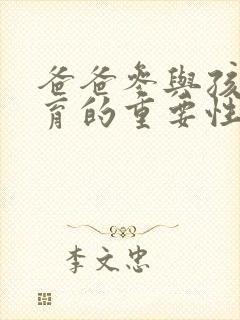 爸爸參與孩
育的重要性
李文忠